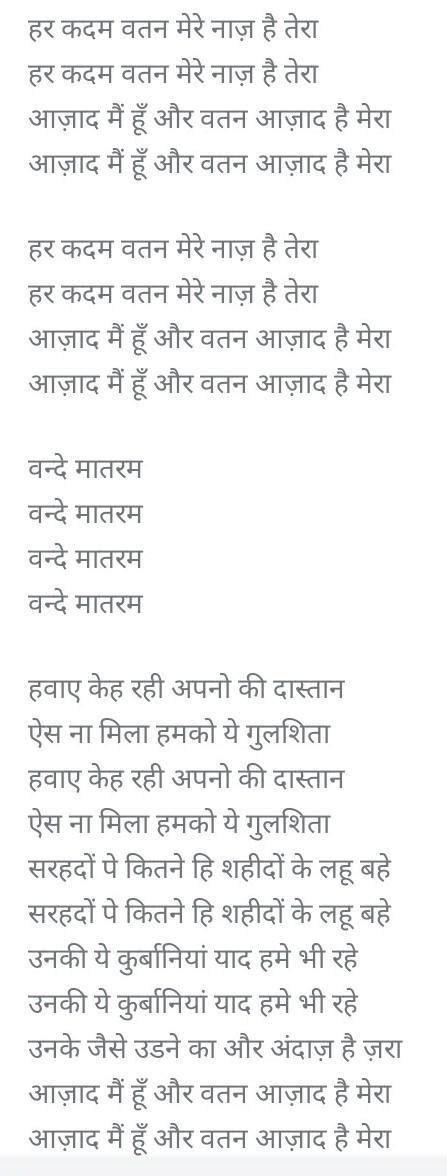 हर कदम वतन मेरे नाज़ है तेरा
हर कदम वतन मेरे नाज़ है तेरा
आज़ाद मैं हूँ और वतन आज़ाद है मेरा
आज़ाद मैं हूँ और वतन आज़ाद है मेरा
हर कदम वतन मेरे नाज़ है तेरा
हर कदम वतन मेरे नाज़ है तेरा
आज़ाद मैं हूँ और वतन आज़ाद है मेरा
आज़ाद मैं हूँ और वतन आज़ाद है मेरा
वन्दे मातरम
वन्दे मातरम
वन्दे मातरम
वन्दे मातरम
हवाए केह रही अपनो की दास्तान
ऐस ना मिला हमको ये गुलशिता
हवाए केह रही अपनो की दास्तान
ऐस ना मिला हमको ये गुलशिता
सरहदों पे कितने हि शहीदों के लहू बहे
सरहदों पे कितने हि शहीदों के लहू बहे
उनकी ये कुर्बानियां याद हमे भी रहे
उनकी ये कुर्बानियां याद हमे भी रहे
उनके जैसे उडने का और अंदाज़ है ज़रा
आज़ाद मैं हूँ और वतन आज़ाद है मेरा
आज़ाद मैं हूँ और वतन आज़ाद है मेरा